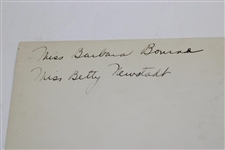 Miss Barbara Bourne
Miss Betty Newstadt